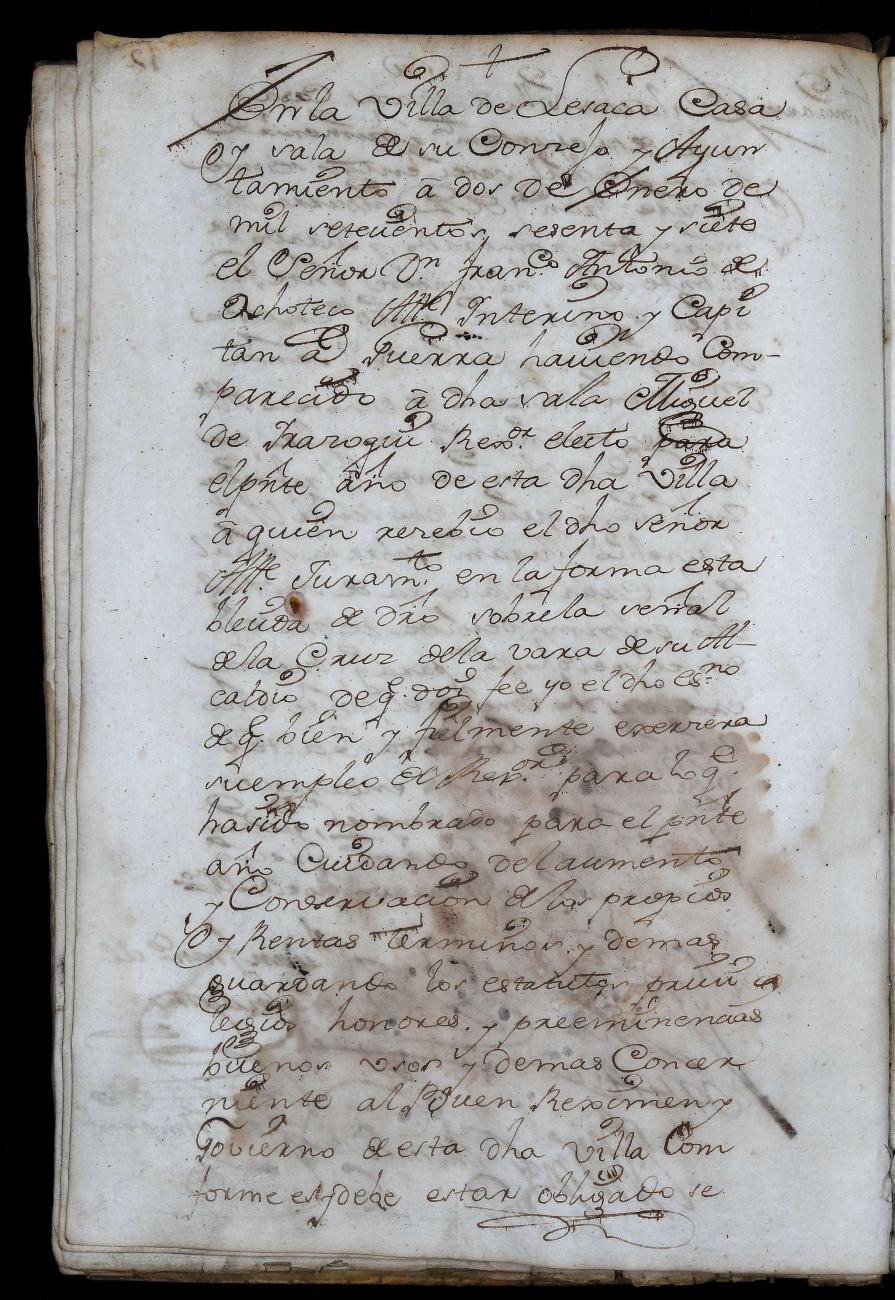 En la Villa de Lesaca Casa
y sala de su Conzejo y Ayun
tamiento â dos de Enero de
mil setecientos, sesenta y siete
el Señor Dn. Franco. Antonio de
Ochoteco Alle. Interino y Capi
tan â Guerra haviendo Com-
parecido â dha sala Miguel
de Irazoqui Rexor. electo para
el pnte año de esta dha Villa
â quien rezebio el dho señor
Alle. Juramto. en la forma esta
blecida de dro sobre la señal
de la Cruz de la vara de su Al-
caldio de q. doi fee yo el dho esno.
de q. bien y fielmente exerzera
su empleo de Rexor. para lo q.
ha sido nombrado para el pnte
año Cuidando del aumento
y Conservacion de los propios
y Rentas terminos y demas
guardando los estatutos privi
legios honores. y preeminencias
buenos usos y demas Concer
niente al Buen Reximen y
Govierno de esta dha villa Com
forme es y debe estar obligado se